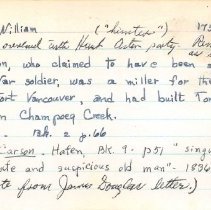 William ("hunter") 175
overland with Hunt Astor party
on, who claimed to have been a
War soldier, was a miller for th
ort Vancouver, and had built
on Champoeg Creek.
Bk. 2 p. 66
Carson. Hafen, Bk. 9. p51 "sing
ate and suspicious old man". 1836
te from James Douglas letter.)